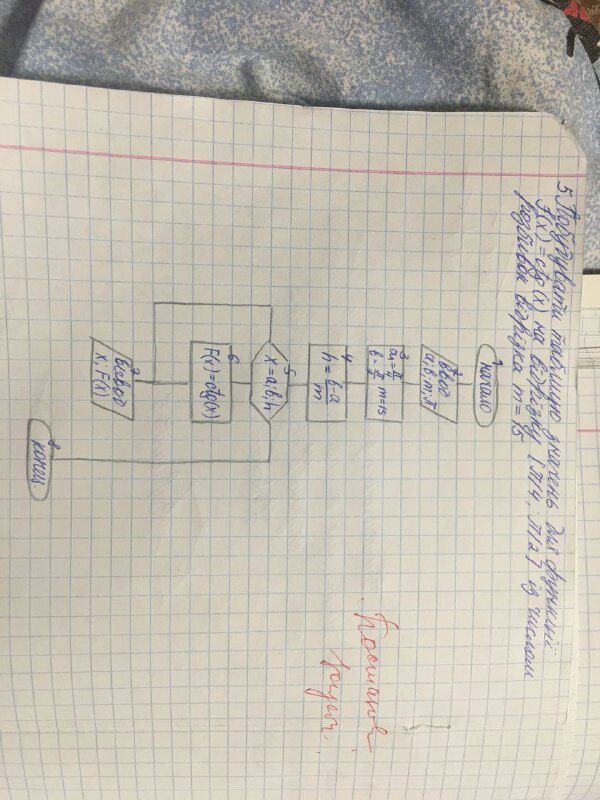 5. Побудувати таблицю значень для функції
F(x)=ctg(x) на відрізку [π/4; π/2] із числом
розбивок відрізка m=15
1
начало
2
ввод
a; в; m; π
3
a=π/4
в=π/2 m=15
4
h=в-a/m
5
x=a; в; h
6
F(x)=ctg(x)
7
вывод
x; F(x)
8
конец.